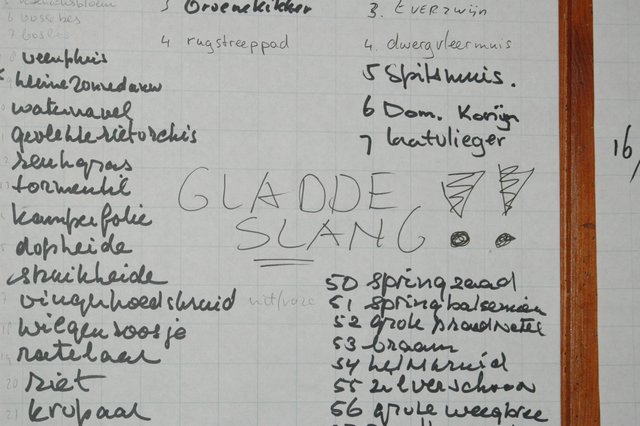 3 Groene kikker
4 rugstreeppad
3. Everzwijn
4. dwergvleermuis
5 Spitsmuis.
6 Dom. Konijn
7 Laatvlieger
6 bosbes
8 veenpluis
kleine zonnedauw
waternavel
gevlekte rietorchis
reukgras
tormentil
kamperfolie
dopheide
struikheide
vingerhoedskruid wit/roze
wilgenroosje
ratelaar
20 riet
21 kropaar
GLADDE
SLANG !!
16/
50 springzaad
51 springbalsemien
52 grote brandnetel
53 braam
54 helmkruid
55 zilverschoon
56 grote weegbree